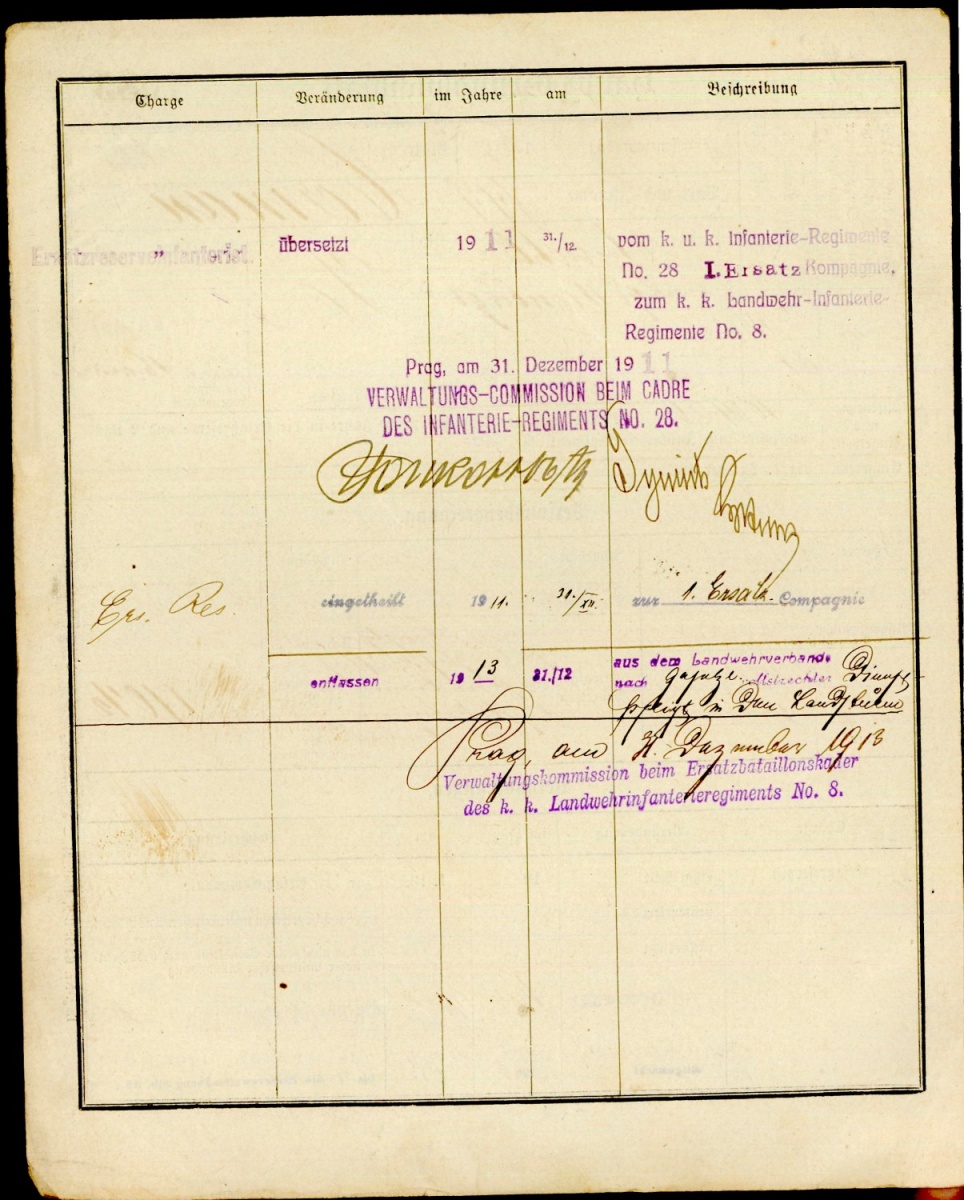 Charge Veränderung im Jahre am Beschreibung
Ersatzreserveinfanterist. " übersetzt 1911 31./12. vom k. u. k. Infanterie-Regimente
No. 28 I. Ersatz Kompagnie,
zum k. k. Landwehr-Infanterie-
Regimente No. 8.
Prag, am 31. Dezember 1911
VERWALTUNGS-COMMISSION BEIM CADRE
DES INFANTERIE-REGIMENTS NO. 28.
Ers. Res. eingetheilt 1911. 31./XII. zur 1. Ersatz- Compagnie
entlassen 1913 31./12 aus dem Landwehrverbande
nach Dienst-
in den Landsturm
Prag, am 31. Dezember 1913
Verwaltungskommission beim Ersatzbataillonskader
des k. k. Landwehrinfanterieregiments No. 8.